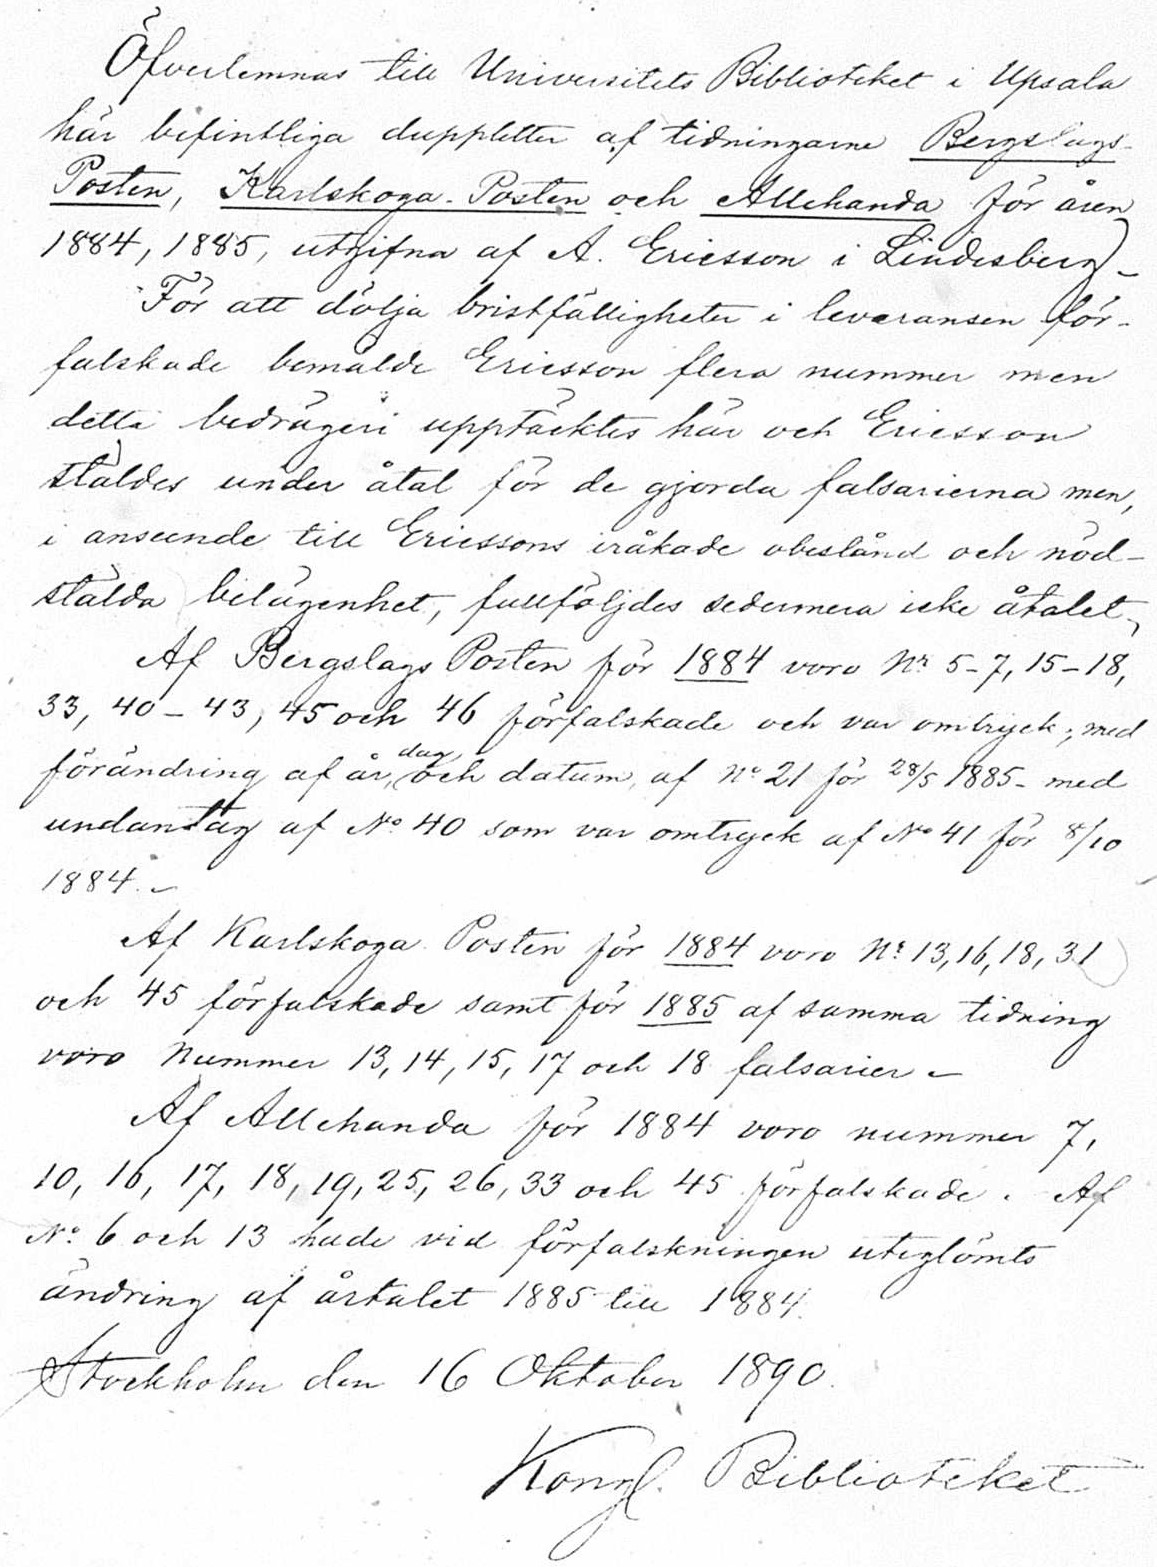 Öfverlemnas till Universitets Biblioteket i Upsala
här befintliga duppletter af tidningarne Bergslags-
Posten, Karlskoga-Posten och Allehanda för åren
1884, 1885, utgifna af A. Ericsson i Lindesberg –
För att dölja bristfälligheter i leveransen för-
falskade bemälde Ericsson flera nummer men
detta bedrägeri upptäcktes här och Ericsson
stäldes under åtal för de gjorda falsarierna men,
i anseende till Ericssons iråkade obestånd och nöd-
stälda belägenhet, fullföljdes sedermera icke åtalet,
Af Bergslags Posten för 1884 voro Nr 5–7, 15–18,
33, 40–43, 45 och 46 förfalskade och var omtryck, med
förändring af år, dag och datum, af No 21 för 28/5 1885 – med
undantag af No 40 som var omtryck af No 41 för 8/10
1884. –
Af Karlskoga Posten för 1884 voro Nr 13, 16, 18, 31
och 45 förfalskade samt för 1885 af samma tidning
voro Nummer 13, 14, 15, 17 och 18 falsarier –
Af Allehanda för 1884 voro nummer 7,
10, 16, 17, 18, 19, 25, 26, 33 och 45 förfalskade. Af
No 6 och 13 hade vid förfalskningen uteglömts
ändring af årtalet 1885 till 1884.
Stockholm den 16 Oktober 1890.
Kongl. Biblioteket